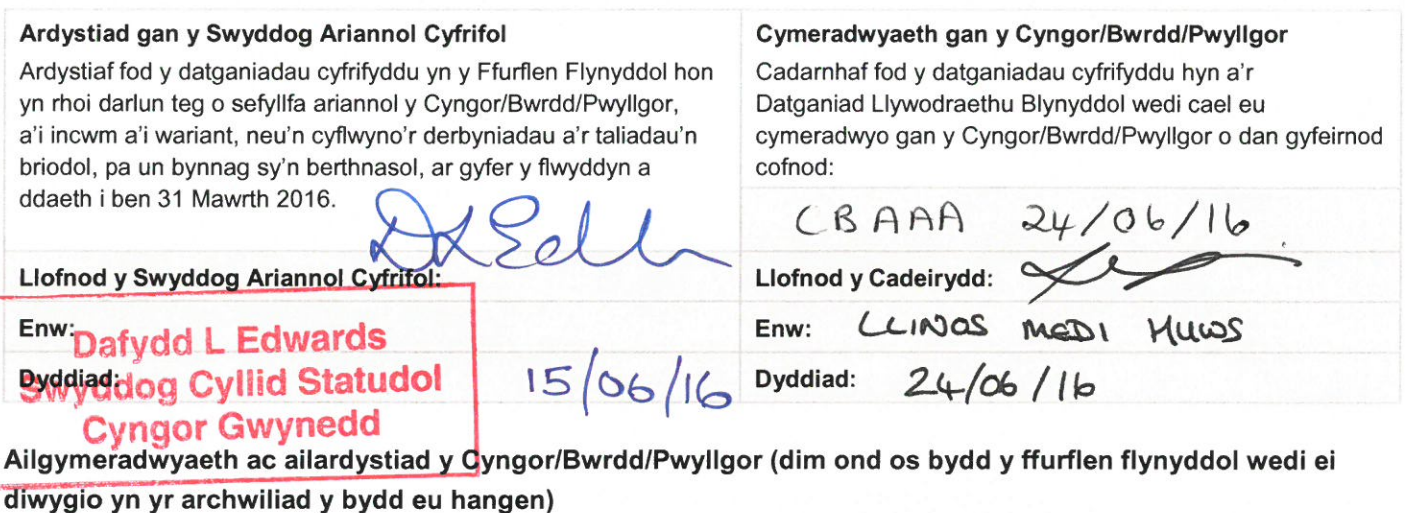 Ardystiad gan y Swyddog Ariannol Cyfrifol
Ardystiaf fod y datganiadau cyfrifyddu yn y Ffurflen Flynyddol hon
yn rhoi darlun teg o sefyllfa ariannol y Cyngor/Bwrdd/Pwyllgor,
a'i incwm a'i wariant, neu'n cyflwyno'r derbyniadau a'r taliadau'n
briodol, pa un bynnag sy'n berthnasol, ar gyfer y flwyddyn a
ddaeth i ben 31 Mawrth 2016.
Llofnod y Swyddog Ariannol Cyfrifol:
Enw:
Dafydd L Edwards
Dyddiad:
Swyddog Cyllid Statudol
15/06/16
Cyngor Gwynedd
Cymeradwyaeth gan y Cyngor/Bwrdd/Pwyllgor
Cadarnhaf fod y datganiadau cyfrifyddu hyn a'r
Datganiad Llywodraethu Blynyddol wedi cael eu
cymeradwyo gan y Cyngor/Bwrdd/Pwyllgor o dan gyfeirnod
cofnod:
CBAAA 24/06/16
Llofnod y Cadeirydd:
Enw: LLINOS MEDI HUWS
Dyddiad: 24/06/16
Ailgymeradwyaeth ac ailardystiad y Cyngor/Bwrdd/Pwyllgor (dim ond os bydd y ffurflen flynyddol wedi ei
diwygio yn yr archwiliad y bydd eu hangen)